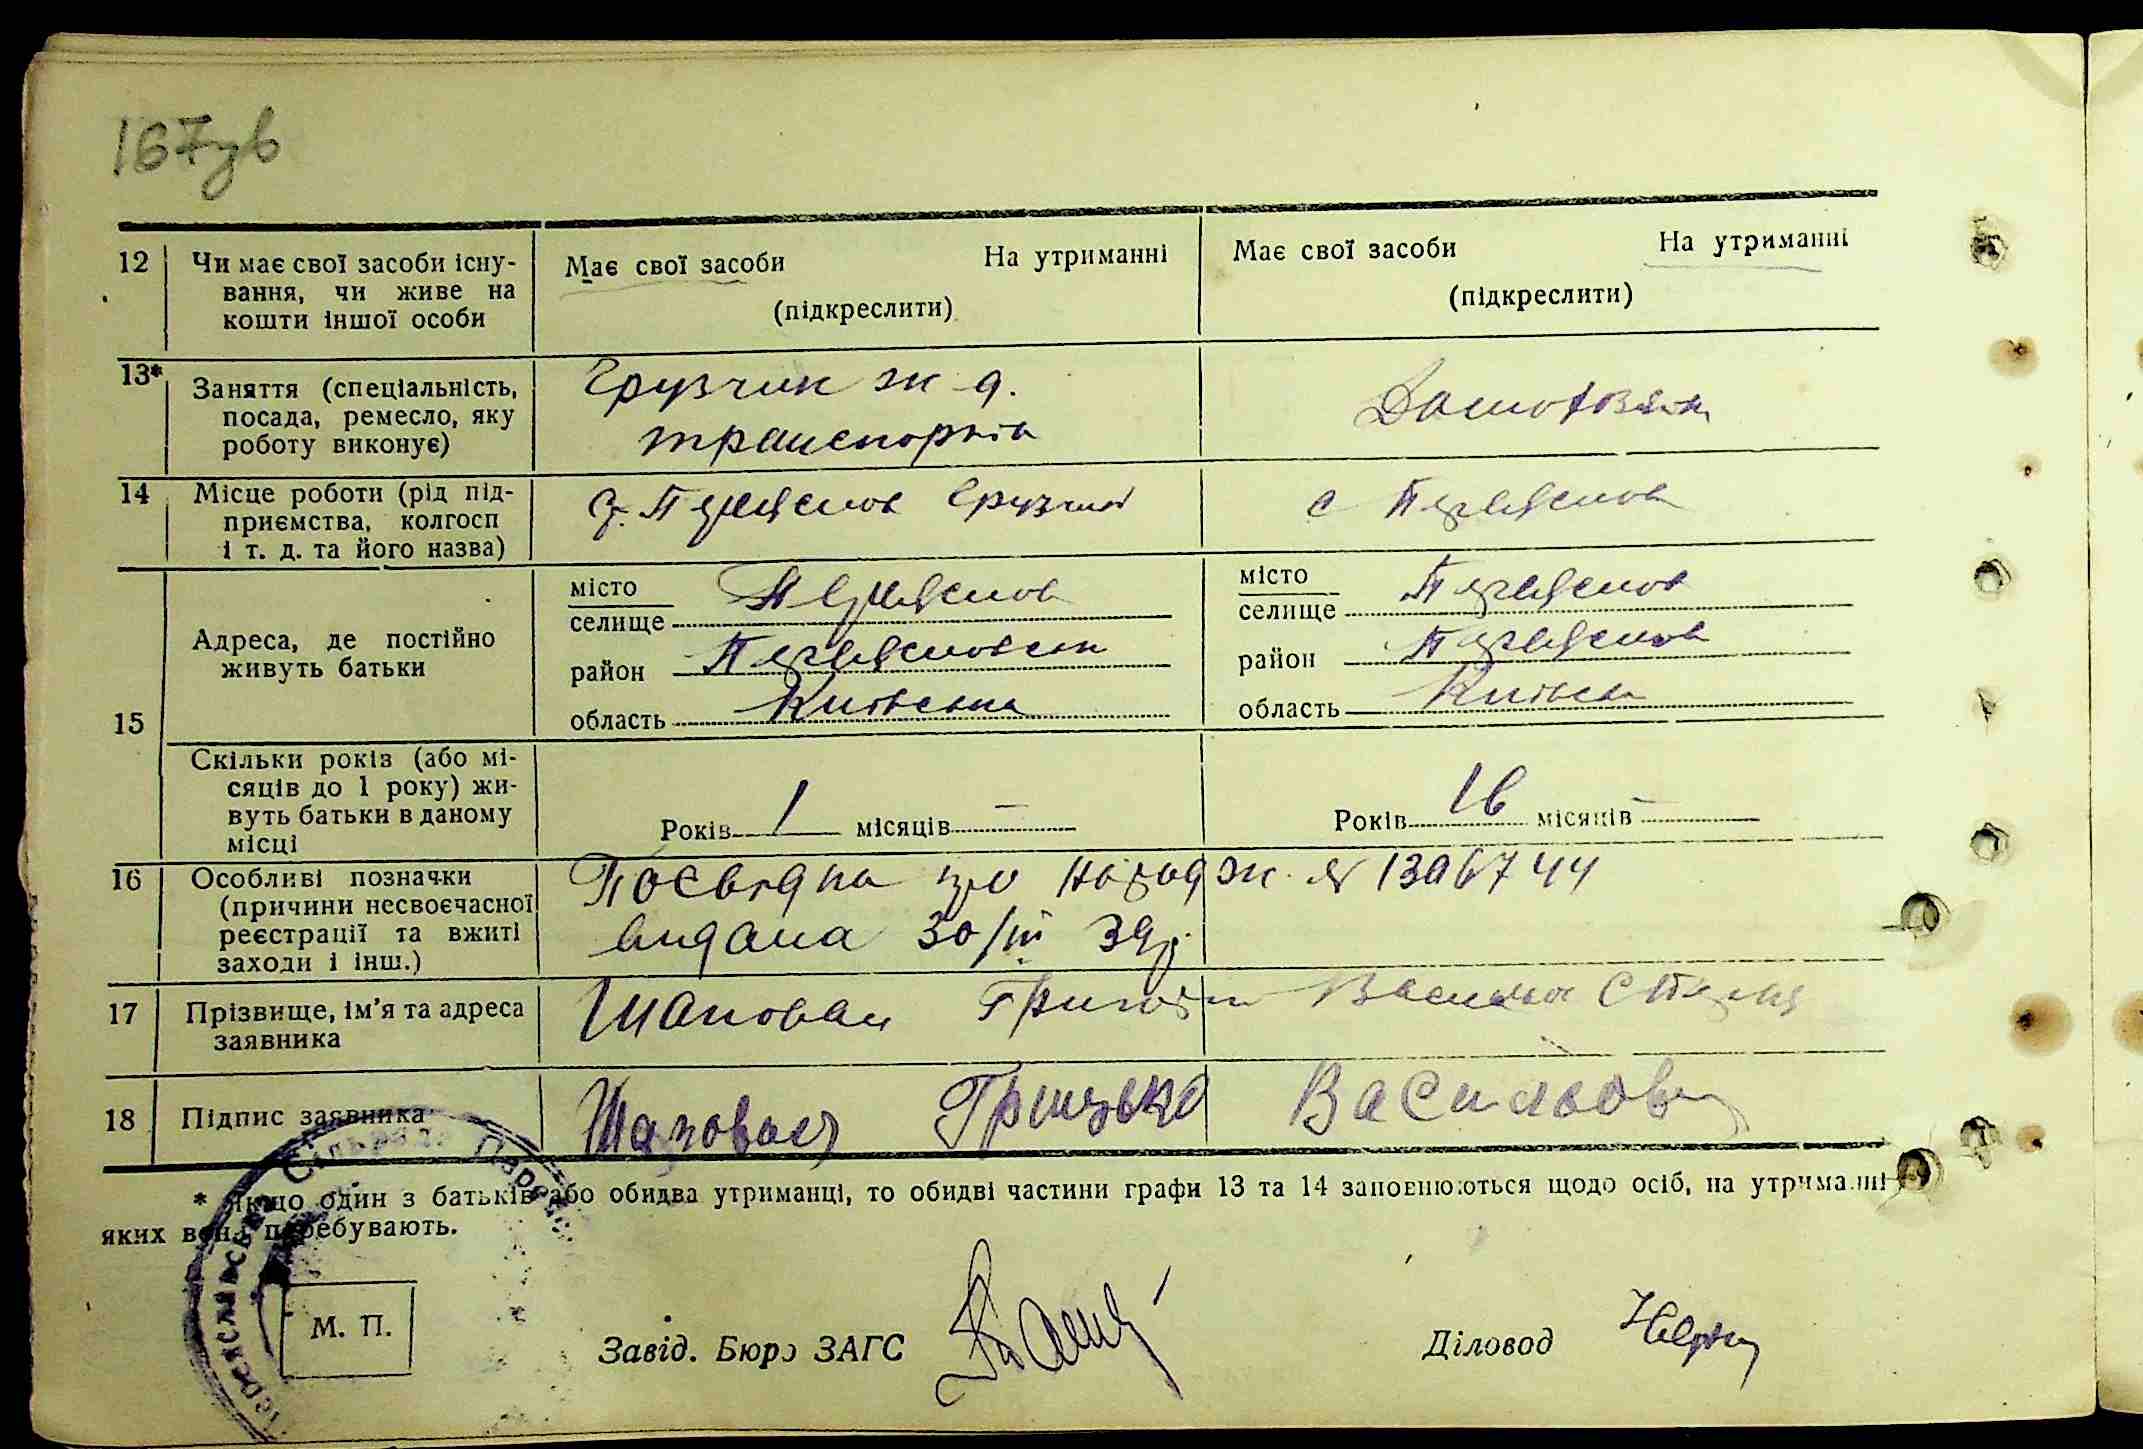 167зв
12 Чи має свої засоби існу-
вання, чи живе на
кошти іншої особи
Має свої засоби На утриманні
(підкреслити)
Має свої засоби На утриманні
(підкреслити)
13* Заняття (спеціальність,
посада, ремесло, яку
роботу виконує)
Грузчик ж д.
транспорта
Домохазяй
14 Місце роботи (рід під-
приємства, колгосп
і т. д. та його назва)
Переяслов Грузчик
с Переяслов
15 Адреса, де постійно
живуть батьки
місто
селище Переяслов
район Переясловськ
область Київська
місто
селище Переяслов
район Переяслов
область Київськ
Скільки років (або мі-
сяців до 1 року) жи-
вуть батьки в даному
місці
Років 1 місяців —
Років 16 місяців —
16 Особливі позначки
(причини несвоєчасної
реєстрації та вжиті
заходи і інш.)
Посвідка про народж. №
видана 30/III 39р.
17 Прізвище, ім’я та адреса
заявника
Шаповал Григорій Василь
18 Підпис заявника
Шаповал Грицько Васильов
* Якщо один з батьків або обидва утриманці, то обидві частини графи 13 та 14 заповнюються щодо осіб, на утриманні
яких вони перебувають.
М. П.
Завід. Бюро ЗАГС
Діловод